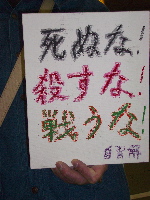 死ぬな!
殺すな!
戦うな!